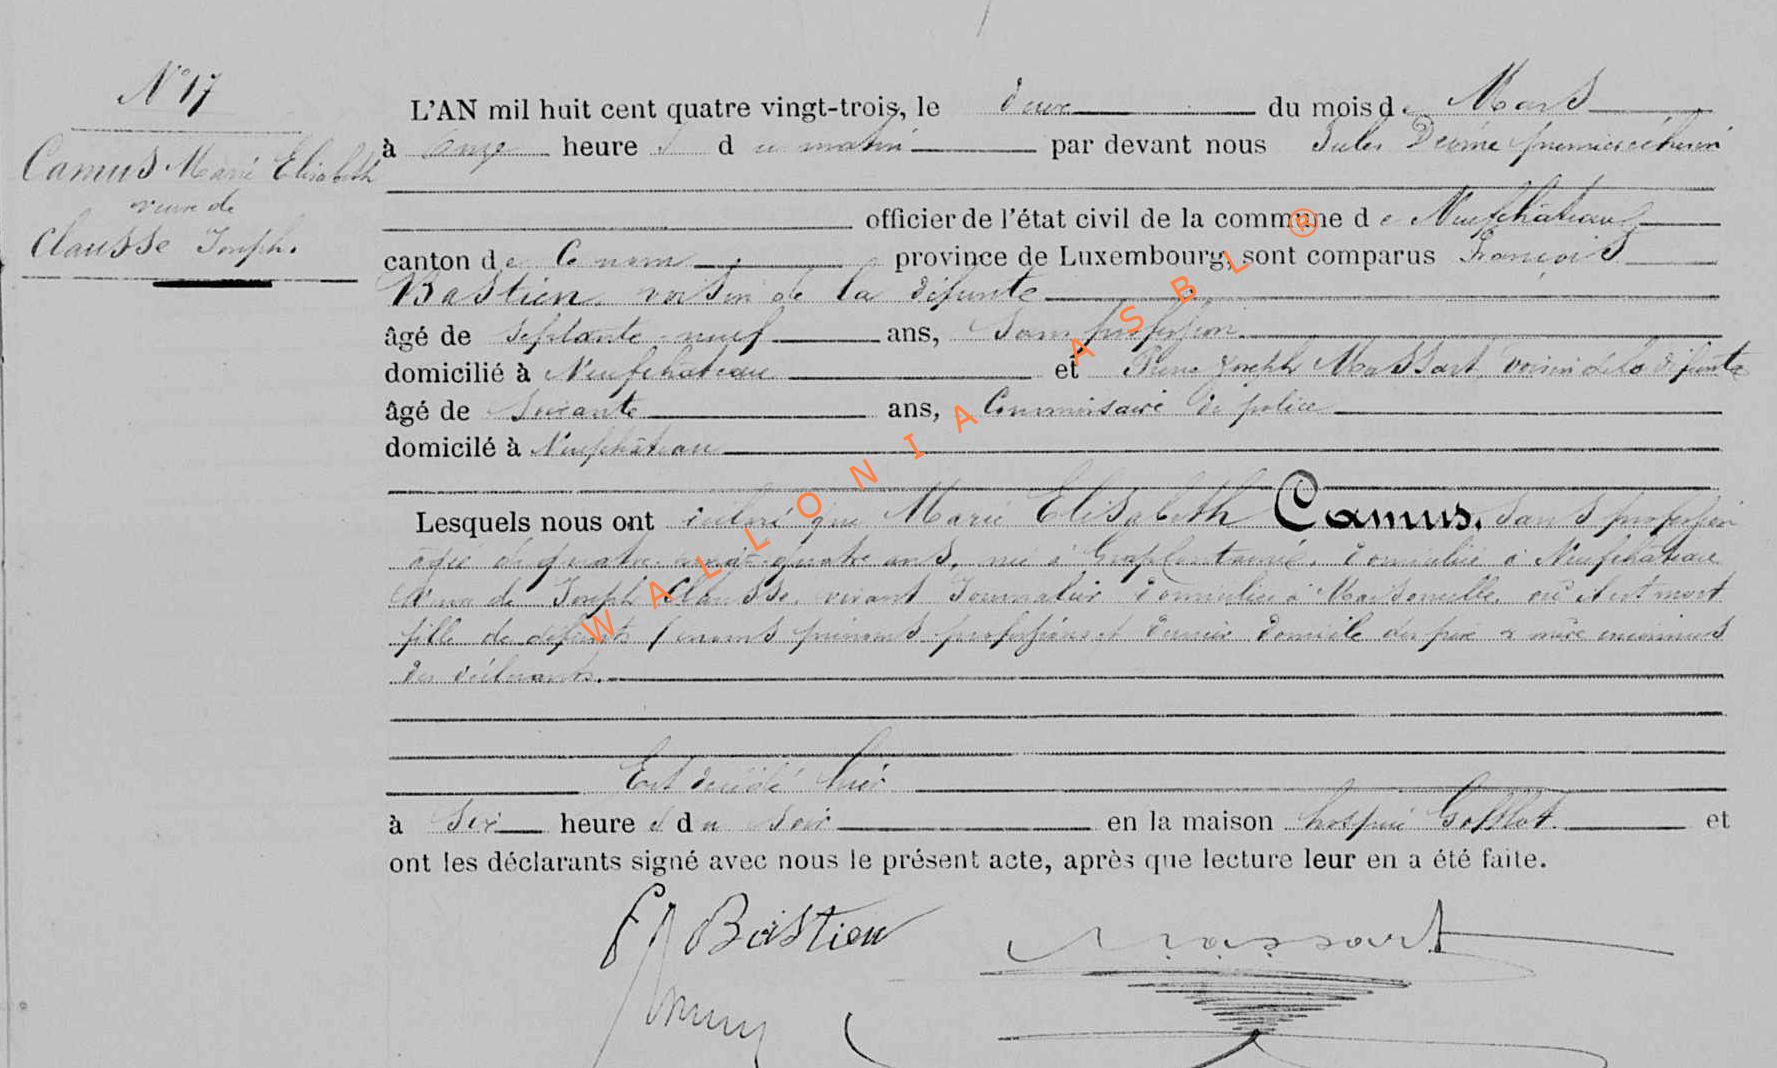 N° 17
Camus Marie Elisabeth
veuve de
Clausse Joseph.
L'AN mil huit cent quatre vingt-trois, le deux du mois de Mars
à onze heures du matin par devant nous Jules premier échevin
officier de l'état civil de la commune de Neufchâteau
canton de province de Luxembourg, sont comparus François
Bastien voisin de la défunte
âgé de septante-neuf ans, sans profession
domicilié à Neufchateau et Pierre Joseph Massart voisin de la défunte
âgé de soixante ans, Commissaire de police
domicilé à Neufchâteau
Lesquels nous ont déclaré que Marie Elisabeth Camus, sans profession
agée de quatre vingt-quatre ans, née à domiciliée à Neufchateau
Veuve de Joseph Clausse, vivant Journalier domicilié à où il est mort
fille de défunts (noms prénoms professions et dernier domicile des père & mère inconnus
des déclarants.
Est décédée hier
à six heures du soir en la maison hospice et
ont les déclarants signé avec nous le présent acte, après que lecture leur en a été faite.
Bastien Massart
WALLONIA ASBL ®